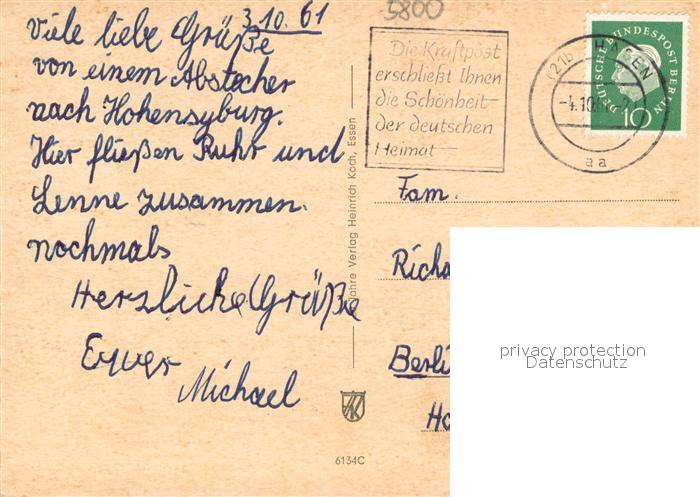 3.10.61
Viele liebe Grüße
von einem Abstecher
nach Hohensyburg.
Hier fließen Ruhr und
Lenne zusammen.
nochmals
Herzliche Grüße
Euer
Michael
Jahre Verlag Heinrich Koch, Essen
6134C
5800
Die Kraftpost
erschließt Ihnen
die Schönheit
der deutschen
Heimat
(21b) HAGEN
-4.10.61
aa
DEUTSCHE BUNDESPOST BERLIN
10
Fam.
Richa
Berli
Ho
privacy protection
Datenschutz